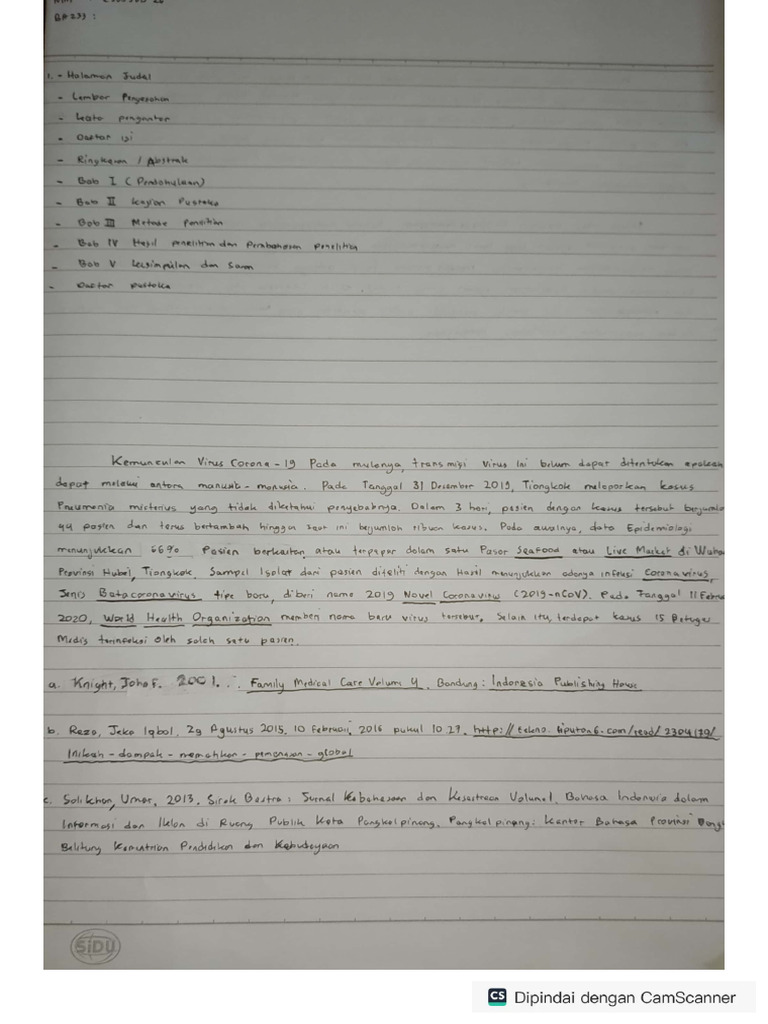 1. - Halaman Judul
- Lembar Pengesahan
- Kata pengantar
- Daftar isi
- Ringkasan / Abstrak
- Bab I (Pendahuluan)
- Bab II Kajian Pustaka
- Bab III Metode Penelitian
- Bab IV Hasil penelitian dan Pembahasan penelitian
- Bab V kesimpulan dan Saran
- Daftar pustaka
Kemunculan Virus Corona-19 Pada mulanya, transmisi Virus ini belum dapat ditentukan apakah
dapat melalui antara manusia - manusia. Pada Tanggal 31 Desember 2019, Tiongkok melaporkan kasus
Pneumonia misterius yang tidak diketahui penyebabnya. Dalam 3 hari, pasien dengan kasus tersebut berjumla
44 pasien dan terus bertambah hingga saat ini berjumlah ribuan kasus. Pada awalnya, data Epidemiologi
menunjukkan 66% Pasien berkaitan atau terpapar dalam satu Pasar Seafood atau Live Market di Wuha
Provinsi Hubei, Tiongkok. Sampel Isolat dari pasien diteliti dengan Hasil menunjukkan adanya infeksi Coronavirus,
Jenis Batacoronavirus tipe baru, diberi nama 2019 Novel Coronavirus (2019-nCoV). Pada Tanggal 11 Febru
2020, World Health Organization memberi nama baru virus tersebut, Selain itu, terdapat kasus 15 Petugas
Medis terinfeksi oleh salah satu pasien.
a. Knight, John F. 2001. . Family Medical Care Volume 4. Bandung: Indonesia Publishing House
b. Reza, Jeko Iqbal, 29 Agustus 2015, 10 Februari, 2016 pukul 10.29. http://tekno.liputan6.com/read/2304179/
Inilah-dampak-mematikan-pemanasan-global
c. Solikhan, Umar, 2013. Sirok Bastra: Jurnal Kebahasaan dan Kesastraan Volume1. Bahasa Indonesia dalam
Informasi dan Iklan di Ruang Publik Kota Pangkalpinang. Pangkalpinang: Kantor Bahasa Provinsi Bang
Belitung Kementrian Pendidikan dan Kebudayaan
SiDU
CS Dipindai dengan CamScanner